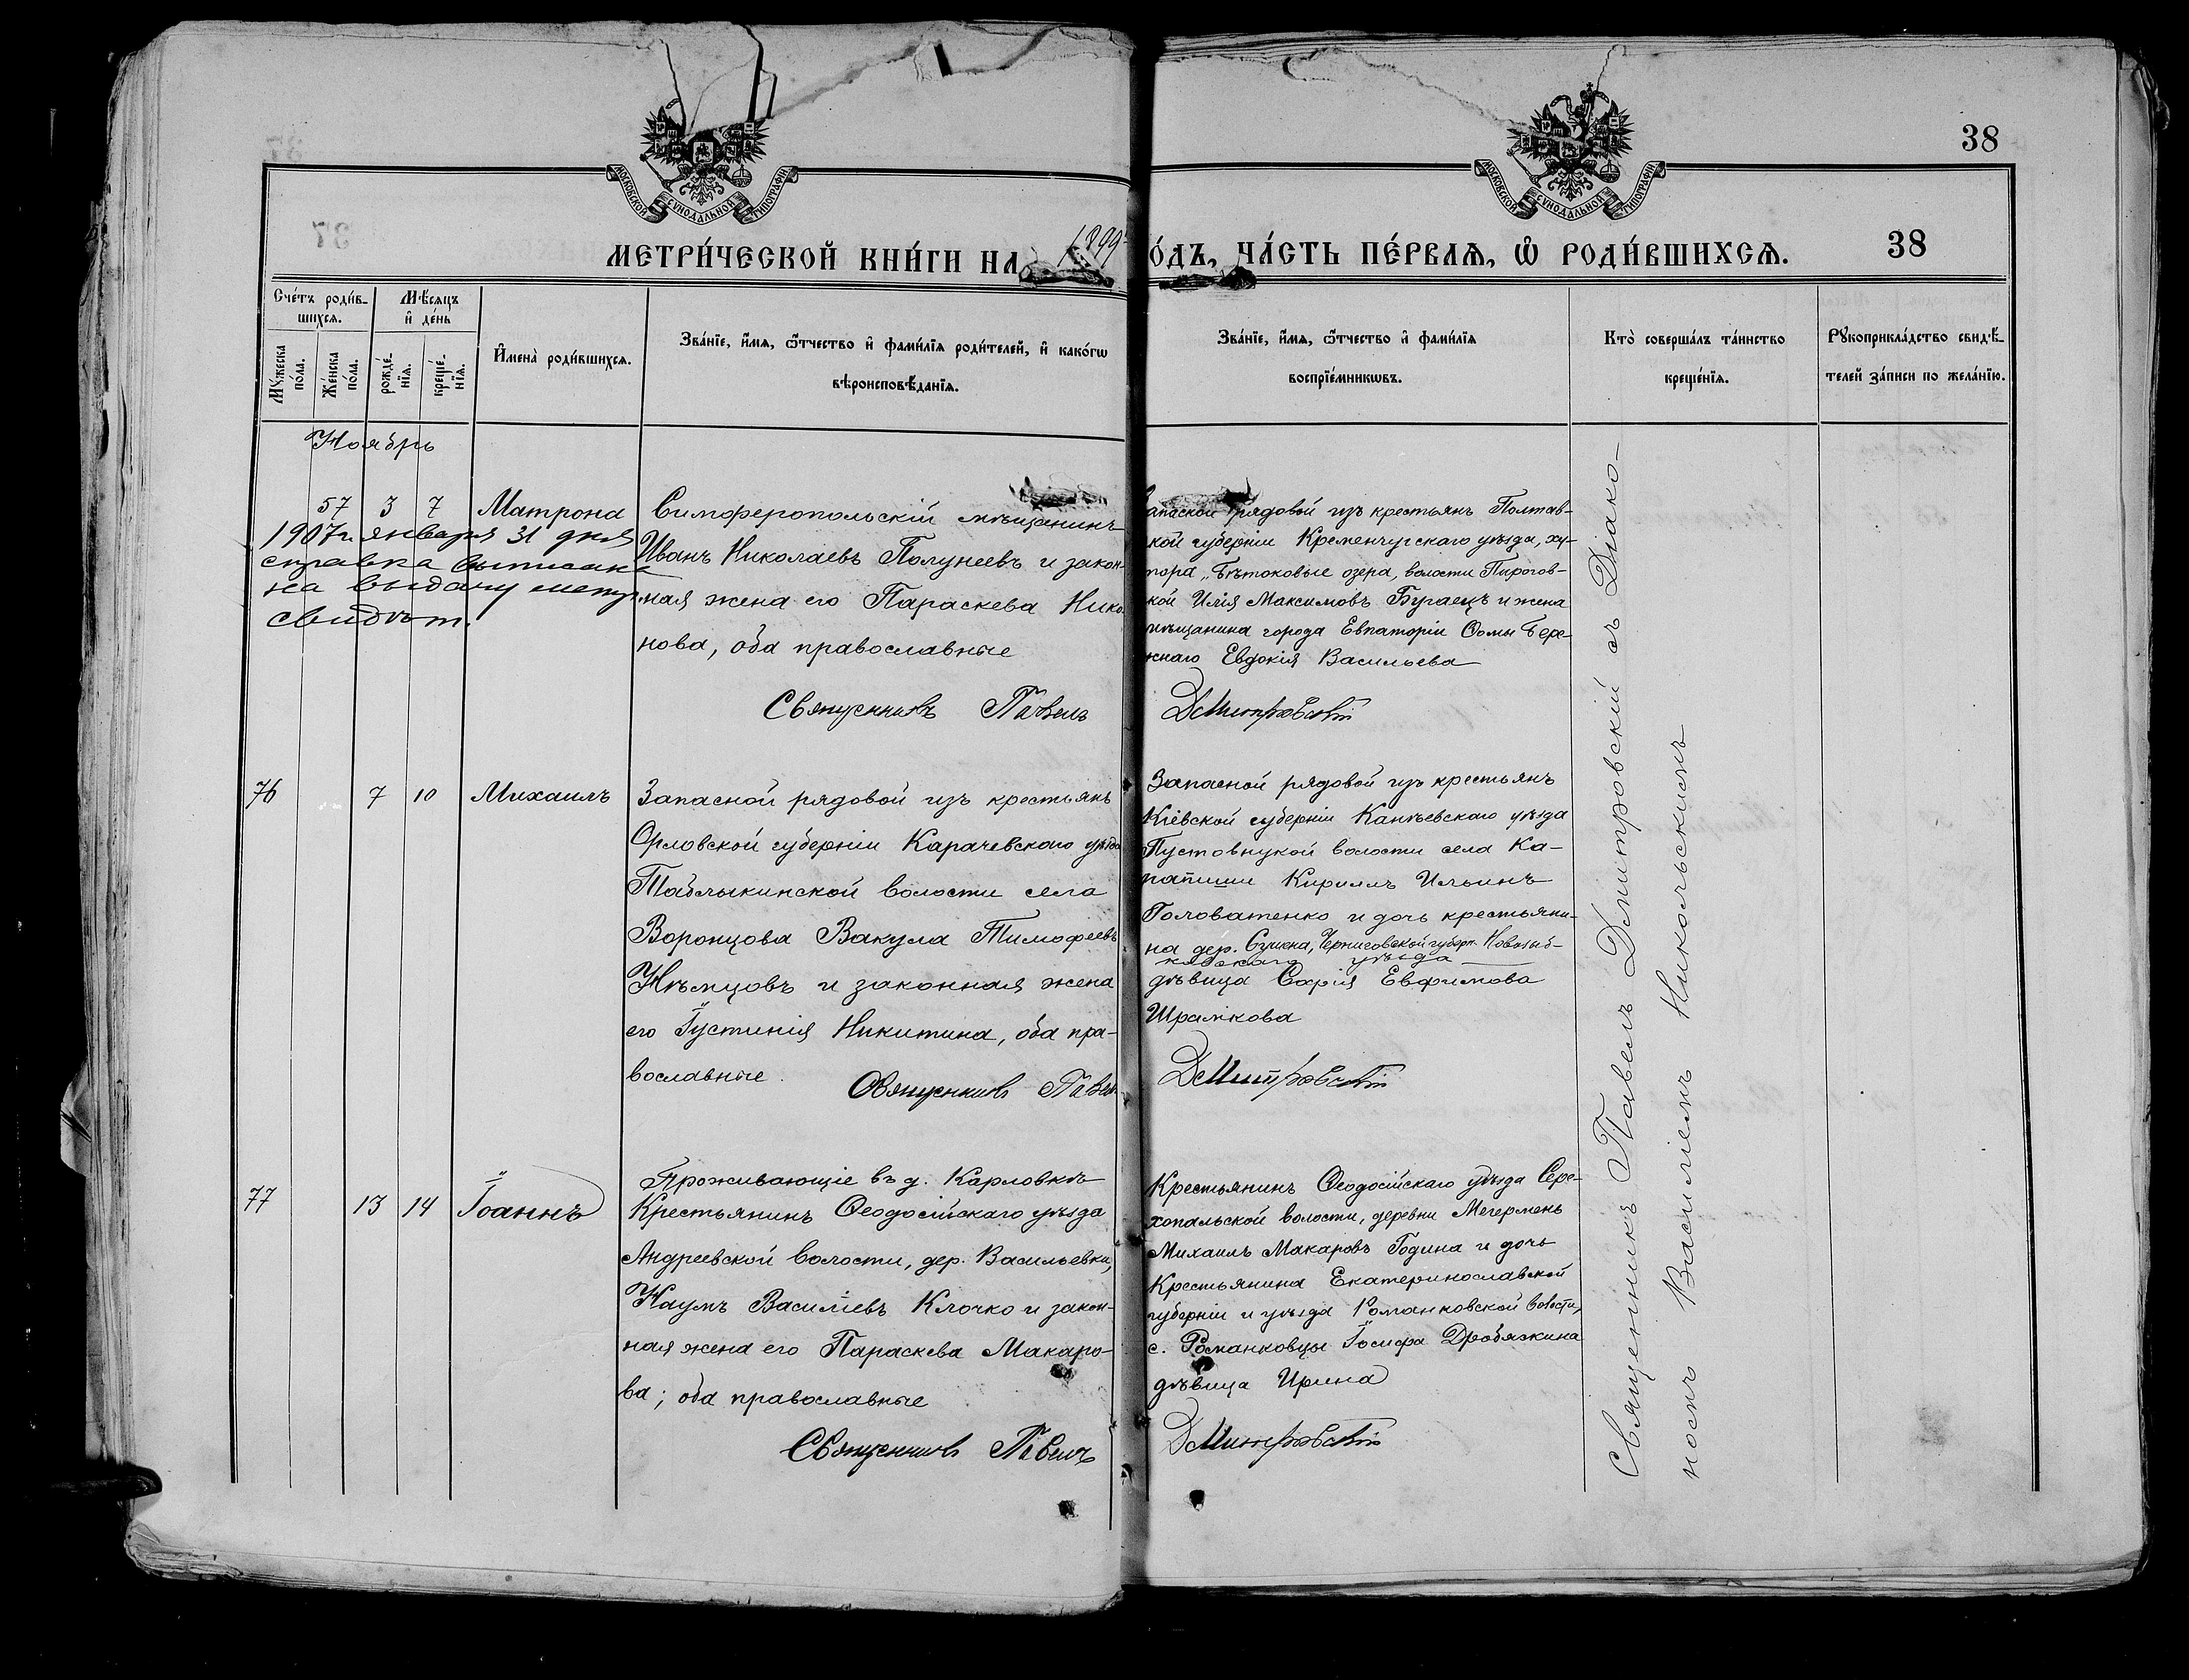 38
МОСКОВСКОЙ СѴНОДАЛЬНОЙ ТИПОГРАФІИ
МОСКОВСКОЙ СѴНОДАЛЬНОЙ ТИПОГРАФІИ
МЕТРИ́ЧЕСКОЙ КНИ́ГИ НА 1899
О́ДЪ, ЧА́СТЬ ПЕ́РВАѦ, Ѿ РОДИ́ВШИХСѦ.
38
Сче́тъ роди́в-
шихсѧ.
Мѣ́сѧцъ
и҆ де́нь
Мꙋ́жеска
по́ла.
Же́нска
по́ла.
рожде́-
нїѧ.
креще́-
нїѧ.
И҆мена̀ роди́вшихсѧ.
Зва́нїе, и҆́мѧ, ѻ҆́тчество и҆ фами́лїѧ роди́телей, и҆ како́гѡ
вѣроисповѣ́данїѧ.
Зва́нїе, и҆́мѧ, ѻ҆́тчество и҆ фами́лїѧ
воспрїе́мникѡвъ.
Кто̀ соверша́лъ та́инство
креще́нїѧ.
Рꙋкоприкла́дство свидѣ́-
телей за́писи по жела́нїю.
Ноябрь
57 3 7 Матрона
1907 г. января 31 дня
справка выписана
на выдачу метр.
свидѣт.
Симферопольскій мѣщанинъ
Иванъ Николаевъ Полунеевъ и закон-
ная жена его Параскева Нико-
нова, оба православные
Священникъ Павелъ
Запасной рядовой изъ крестьянъ Полтав-
кой губерніи Кременчугскаго уѣзда, ху-
тора озера, волости Пирогов-
кой Илія Максимовъ Бугаецъ и жена
мѣщанина города Евпаторіи Ѳомы Бере-
жнаго Евдокія Васильева
Дмитровскій
76 7 10 Михаилъ
Запасной рядовой изъ крестьянъ
Орловской губерніи Карачевскаго уѣзда
Таблыкинской волости села
Воронцова Вакула Тимофеевъ
Нѣмцовъ и законная жена
его Іустинія Никитина, оба пра-
вославные.
Священникъ Павелъ
Запасной рядовой изъ крестьянъ
Кіевской губерніи Каневскаго уѣзда
Пустовнуской волости села Ка-
Кириллъ Ильинъ
Головатенко и дочь крестьяни-
на дер. Черниговской губерн. Новозыб-
ковскаго уѣзда
дѣвица Ефимова
Шрамкова
Дмитровскій
77 13 14 Іоаннъ
Проживающіе въ д. Карловкѣ
Крестьянинъ Ѳеодосійскаго уѣзда
Андреевской волости, дер. Васильевки,
Наумъ Василіевъ Клочко и закон-
ная жена его Параскева Макаро-
ва; оба православные
Священникъ Павелъ
Крестьянинъ Ѳеодосійскаго уѣзда Сере-
хопальской волости, деревни Мегермень
Михаилъ Макаровъ Година и дочь
Крестьянина Екатеринославской
губерніи и уѣзда Романковской волости,
с. Романковцы Іосифа Дробяскина
дѣвица Ирина
Дмитровскій
Священникъ Павелъ Дмитровскій съ Діако-
номъ Василіемъ Никольскимъ